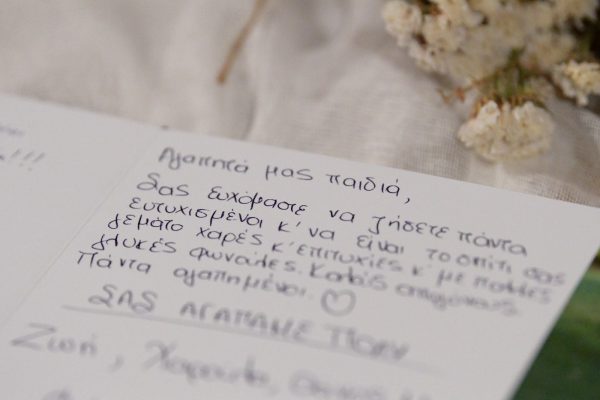 !!!
Αγαπητά μας παιδιά,
Σας ευχόμαστε να ζήσετε πάντα
ευτυχισμένοι κ' να είναι το σπίτι σας
γεμάτο χαρές κ' επιτυχίες κ' με πολλές
γλυκές φωνούλες. Καλούς απογόνους
Πάντα αγαπημένοι. ♡
ΣΑΣ ΑΓΑΠΑΜΕ ΠΟΛΥ
Ζωή,